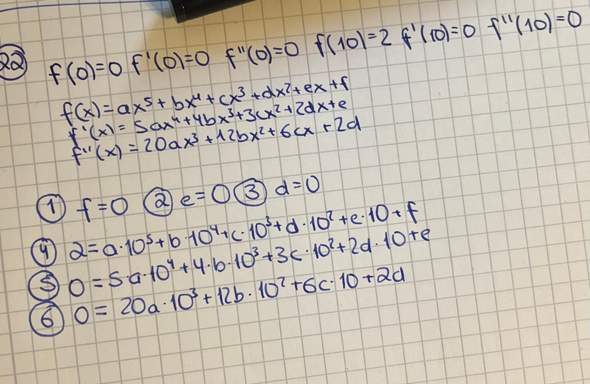 22 f(0)=0 f'(0)=0 f''(0)=0 f(10)=2 f'(10)=0 f''(10)=0
f(x)=ax⁵+bx⁴+cx³+dx²+ex+f
f'(x)=5ax⁴+4bx³+3cx²+2dx+e
f''(x)=20ax³+12bx²+6cx+2d
① f=0 ② e=0 ③ d=0
④ 2=a·10⁵+b·10⁴+c·10³+d·10²+e·10+f
⑤ 0=5a·10⁴+4·b·10³+3c·10²+2d·10+e
⑥ 0=20a·10³+12b·10²+6c·10+2d